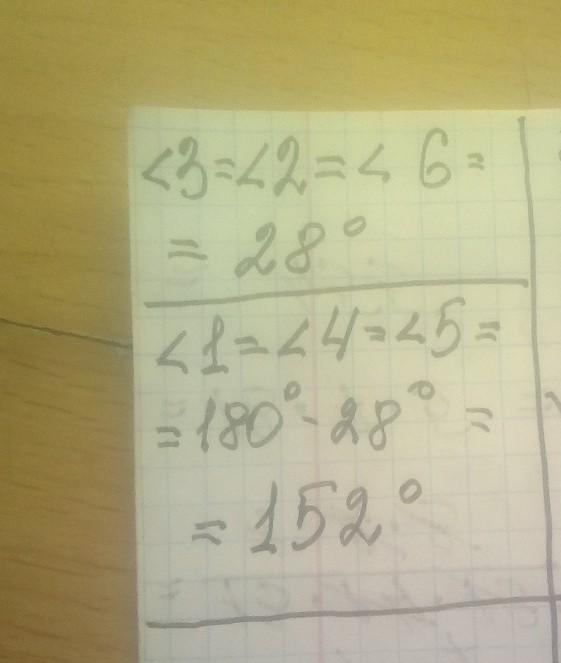 <3=<2=< 6=
= 28°
<1=<4=<5=
=180°-28°=
=152°